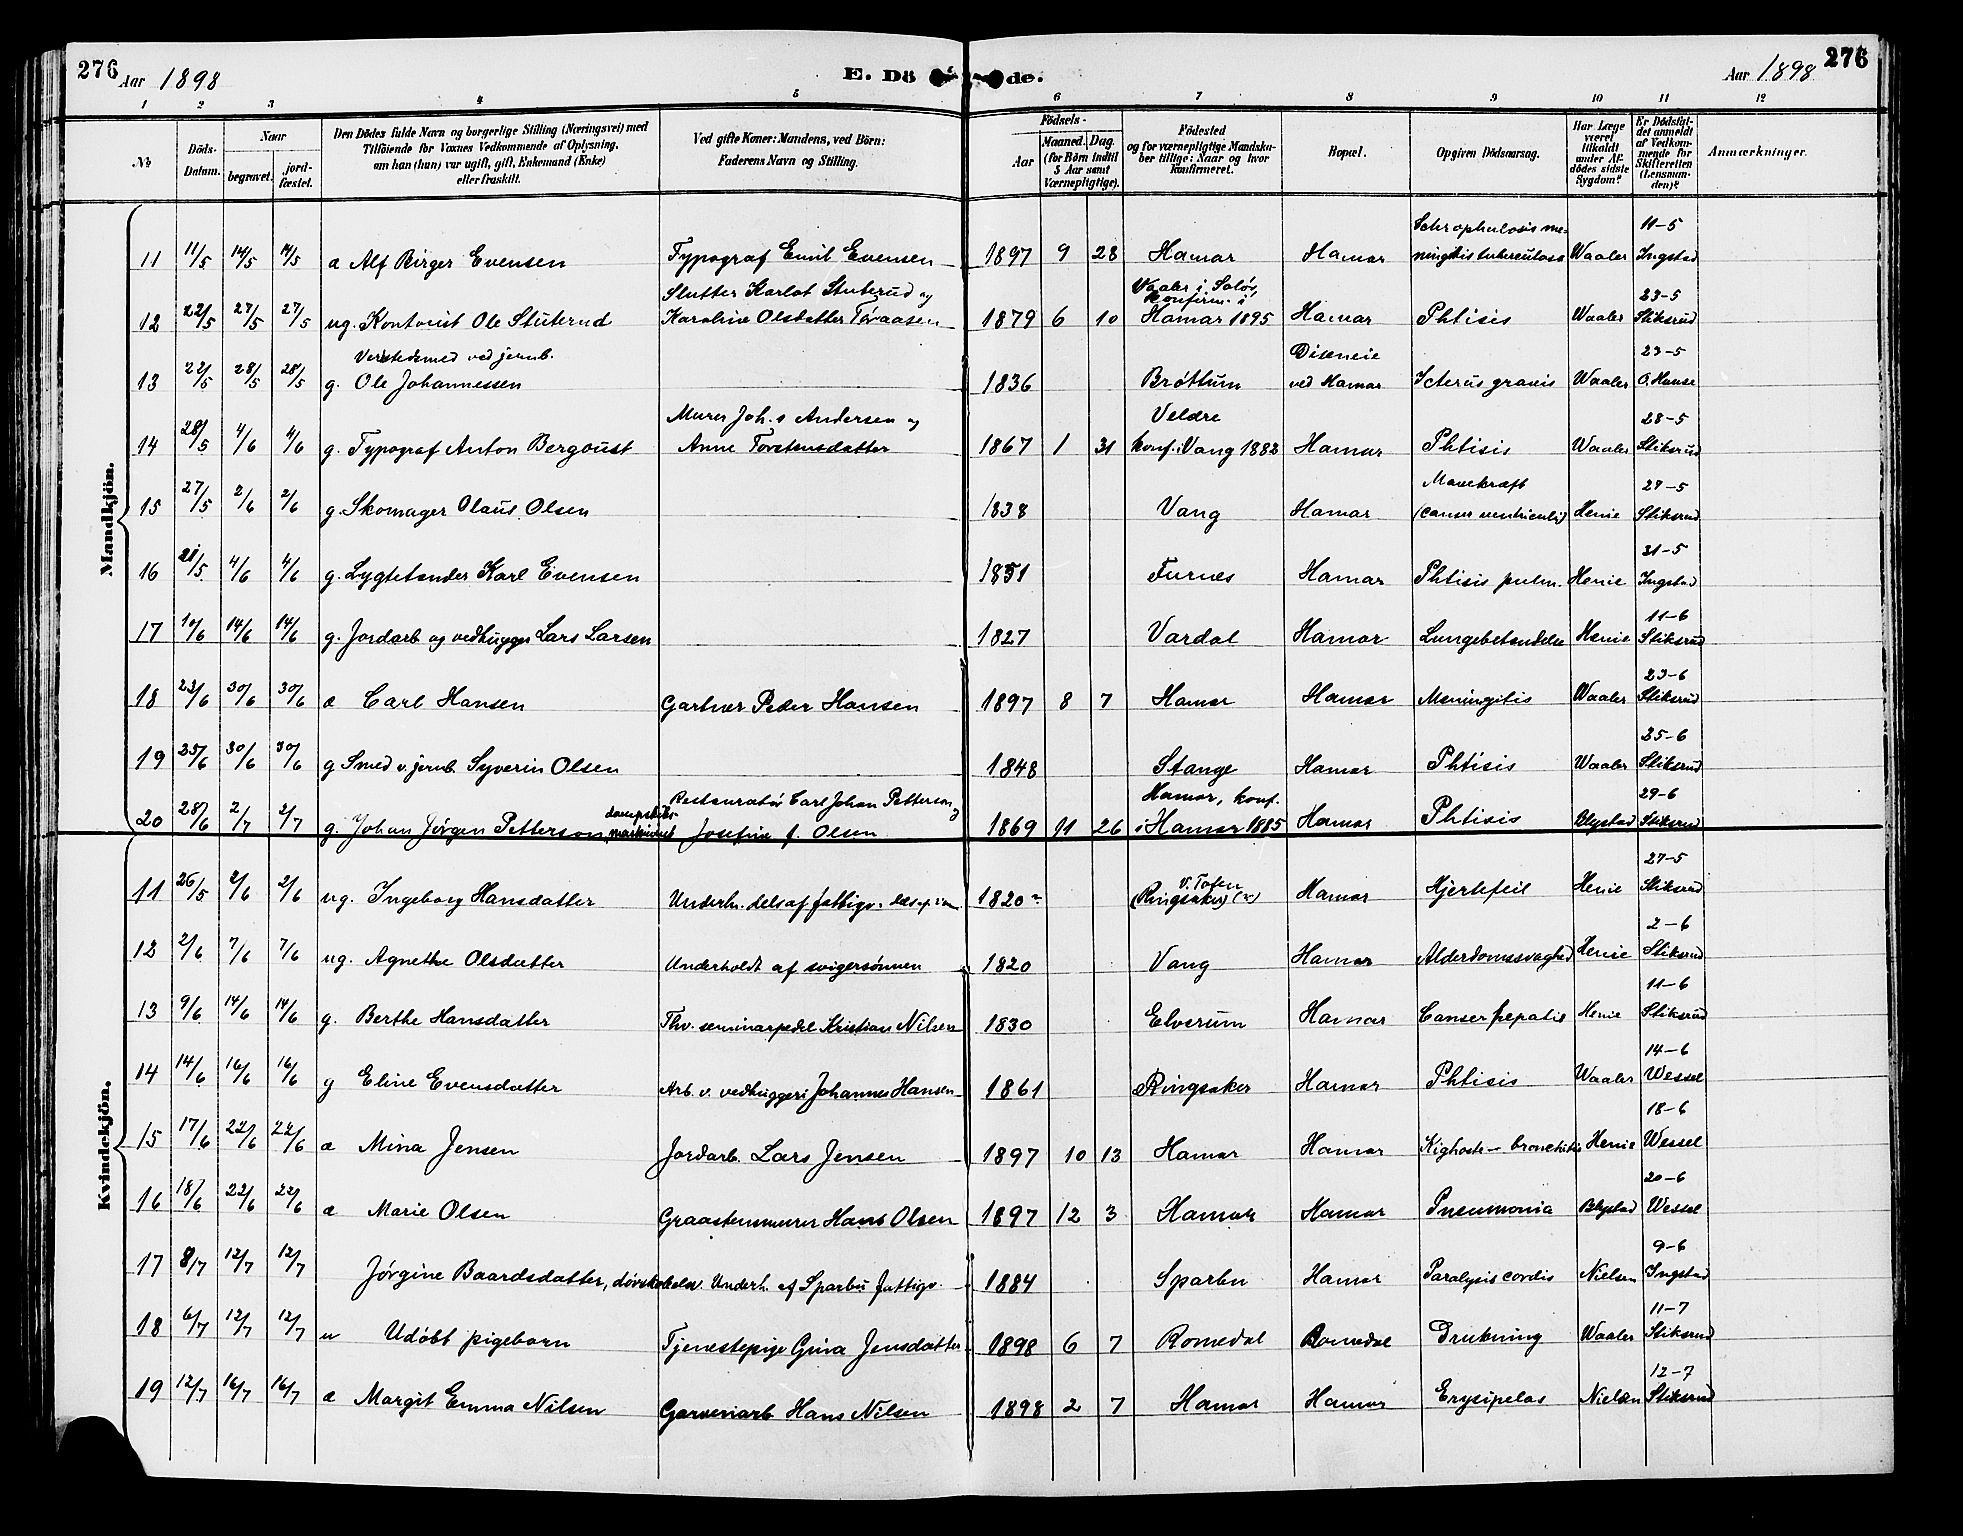 276 Aar 1898 E. Dö de. Aar 1898 276
1 2 3 4 5 6 7 8 9 10 11 12
№ Döds-Datum. Naar begravet. jord-fæstet. Den Dödes fulde Navn og borgerlige Stilling (Næringsvei) med Tilföiende for Voxnes Vedkommende af Oplysning, om han (hun) var ugift, gift, Enkemand (Enke) eller fraskilt. Ved gifte Koner: Mandens, ved Börn: Faderens Navn og Stilling. Födsels- Aar Maaned. Dag. (for Börn indtil 5 Aar samt Værnepligtige). Födested og for værnepligtige Mandskaber tillige: Naar og hvor konfirmeret. Bopæl. Opgiven Dödsaarsag. Har Læge været tilkaldt under Afdödes sidste Sygdom? Er Dödsfaldet anmeldt af Vedkommende for Skifteretten (Lensmanden)? Anmærkninger.
Mandkjön.
11 11/5 14/5 14/5 a Alf Birger Evensen Typograf Emil Evensen 1897 9 28 Hamar Hamar Schrophulosis meningitis tuberculosa Waaler 11-5 Ingstad
12 22/5 27/5 27/5 ug. Kontorist Ole Stuterud Slutter Karlot Stuterud og Karoline Olsdatter 1879 6 10 Vaaler i Solør, Konfirm. i Hamar 1895 Hamar Phtisis Waaler 23-5 Stiksrud
13 22/5 28/5 28/5 g. Verkstedsmed ved jernb. Ole Johannessen 1836 Brøttum Diseneie ved Hamar Icterus gravis Waaler 23-5
14 28/5 4/6 4/6 g. Typograf Anton Bergqvist Murer Joh.s Andersen og Anne Torstensdatter 1867 1 31 Veldre konf. i Vang 1882 Hamar Phtisis Waaler 28-5 Stiksrud
15 27/5 2/6 2/6 g. Skomager Olaus Olsen 1838 Vang Hamar Mavekræft (canser ventriculi) Henie 27-5 Stiksrud
16 21/5 4/6 4/6 g. Lygtetænder Karl Evensen 1851 Furnes Hamar Phtisis pulm. Henie 31-5 Ingstad
17 10/6 14/6 14/6 g. Jordarb og vedhugger Lars Larsen 1827 Vardal Hamar Lungebetændelse Henie 11-6 Stiksrud
18 23/6 30/6 30/6 a Carl Hansen Gartner Peder Hansen 1897 8 7 Hamar Hamar Meningitis Waaler 23-6 Stiksrud
19 25/6 30/6 30/6 g Smed v. jernb. Syverin Olsen 1848 Stange Hamar Phtisis Waaler 25-6 Stiksrud
20 28/6 2/7 2/7 g. Johan Jørgen Petterson, Restauratør Carl Johan Petterson og Josefine f. Olsen 1869 11 26 Hamar, konf. i Hamar 1885 Hamar Phtisis Blystad 29-6 Stiksrud
Kvindekjön.
11 26/5 2/6 2/6 ug. Ingeborg Hansdatter Underh. dels af fattigv. 1820 V. Toten (Ringsaker) Hamar Hjertefeil Henie 27-5 Stiksrud
12 2/6 7/6 7/6 ug. Agnethe Olsdatter Underholdt af svigersønnen 1820 Vang Hamar Alderdomssvaghed Henie 2-6 Stiksrud
13 9/6 14/6 14/6 g. Berthe Hansdatter Fhv. seminarpedel Kristian Nilsen 1830 Elverum Hamar Canser hepatis Henie 11-6 Stiksrud
14 14/6 16/6 16/6 g Eline Evensdatter Arb. v. vedhuggeri Johannes Hansen 1861 Ringsaker Hamar Phtisis Waaler 14-6 Wessel
15 17/6 22/6 22/6 a Mina Jensen Jordarb. Lars Jensen 1897 10 13 Hamar Hamar Kighoste – bronchitis Henie 18-6 Wessel
16 18/6 22/6 22/6 a Marie Olsen Graastensmurer Hans Olsen 1897 12 3 Hamar Hamar Pneumonia Blystad 20-6 Wessel
17 8/7 12/7 12/7 Jørgine Baardsdatter, døvskolelev. Underh. af Sparbu fattigv. 1884 Sparbu Hamar Paralysis cordis Nielsen 9-6 Ingstad
18 6/7 12/7 12/7 u Udøbt pigebarn Tjenestepige Gina Jensdatter 1898 6 7 Romedal Romedal Drukning Waaler 11-7 Stiksrud
19 12/7 16/7 16/7 a Margit Emma Nilsen Garveriarb Hans Nilsen 1898 2 7 Hamar Hamar Erysipelas Nielsen 12-7 Stiksrud